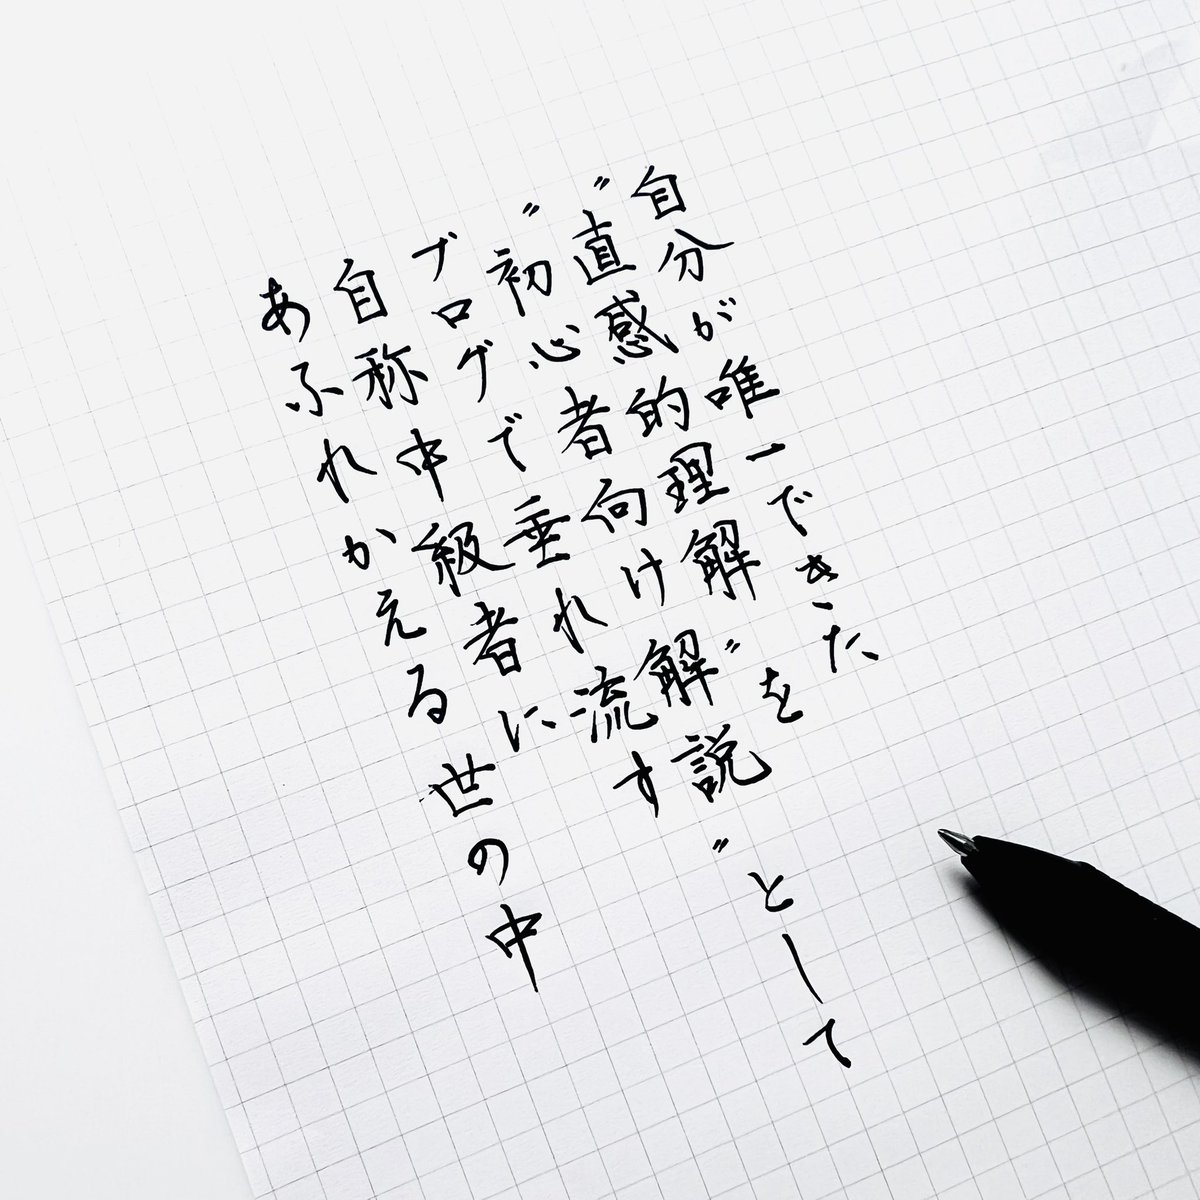 自分が唯一できた
〝直感的理解〟を
〝初心者向け解説〟として
ブログで垂れ流す
自称中級者に
あふれかえる世の中